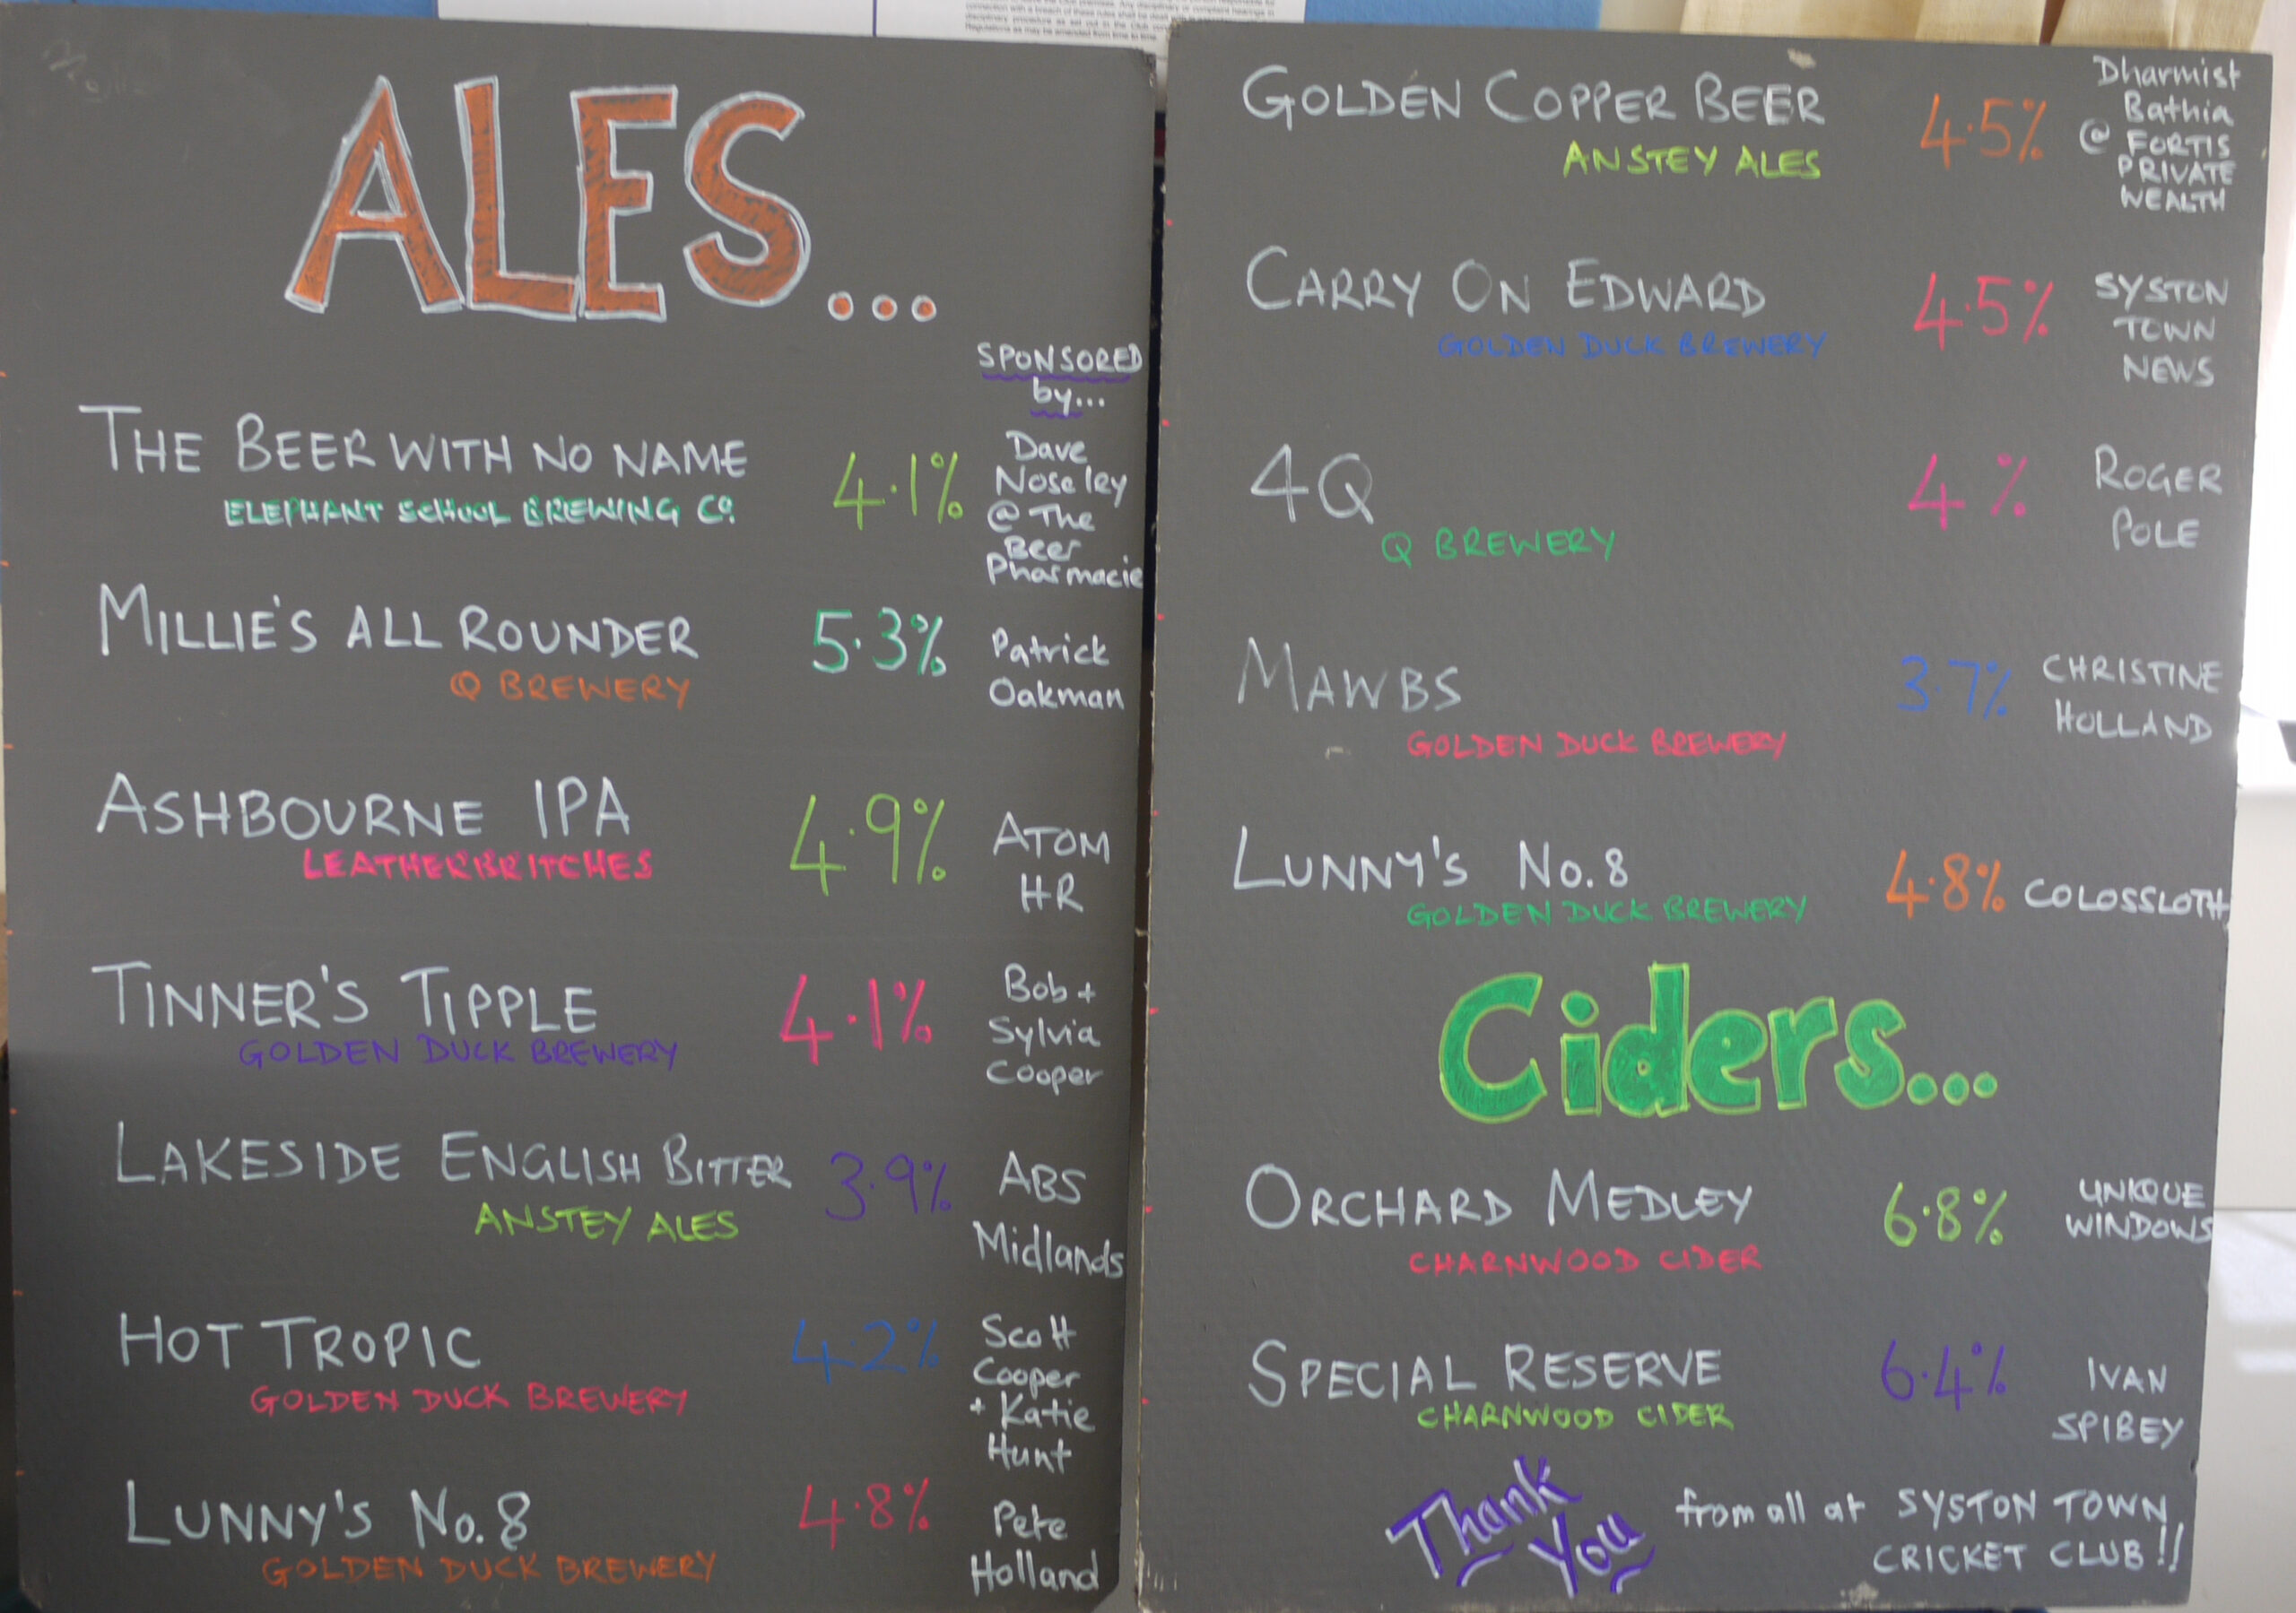 connection with a breach of these rules shall be dealt
disciplinary procedure as set out in the Club
Regulations as may be amended from time to time.
ALES...
SPONSORED
by...
THE BEER WITH NO NAME 4.1%
ELEPHANT SCHOOL BREWING Co.
Dave
Noseley
@ The
Beer
Pharmacie
MILLIE'S ALL ROUNDER 5.3%
Q BREWERY
Patrick
Oakman
ASHBOURNE IPA 4.9%
LEATHERBRITCHES
ATOM
HR
TINNER'S TIPPLE 4.1%
GOLDEN DUCK BREWERY
Bob +
Sylvia
Cooper
LAKESIDE ENGLISH BITTER 3.9%
ANSTEY ALES
ABS
Midlands
HOT TROPIC 4.2%
GOLDEN DUCK BREWERY
Scott
Cooper
+ Katie
Hunt
LUNNY'S No.8 4.8%
GOLDEN DUCK BREWERY
Pete
Holland
GOLDEN COPPER BEER 4.5%
ANSTEY ALES
Dharmist
Bathia
@ FORTIS
PRIVATE
WEALTH
CARRY ON EDWARD 4.5%
GOLDEN DUCK BREWERY
SYSTON
TOWN
NEWS
4Q 4%
Q BREWERY
ROGER
POLE
MAWBS 3.7%
GOLDEN DUCK BREWERY
CHRISTINE
HOLLAND
LUNNY'S No.8 4.8% COLOSSLOTH
GOLDEN DUCK BREWERY
Ciders...
ORCHARD MEDLEY 6.8%
CHARNWOOD CIDER
UNIQUE
WINDOWS
SPECIAL RESERVE 6.4%
CHARNWOOD CIDER
IVAN
SPIBEY
Thank
You
from all at SYSTON TOWN
CRICKET CLUB!!